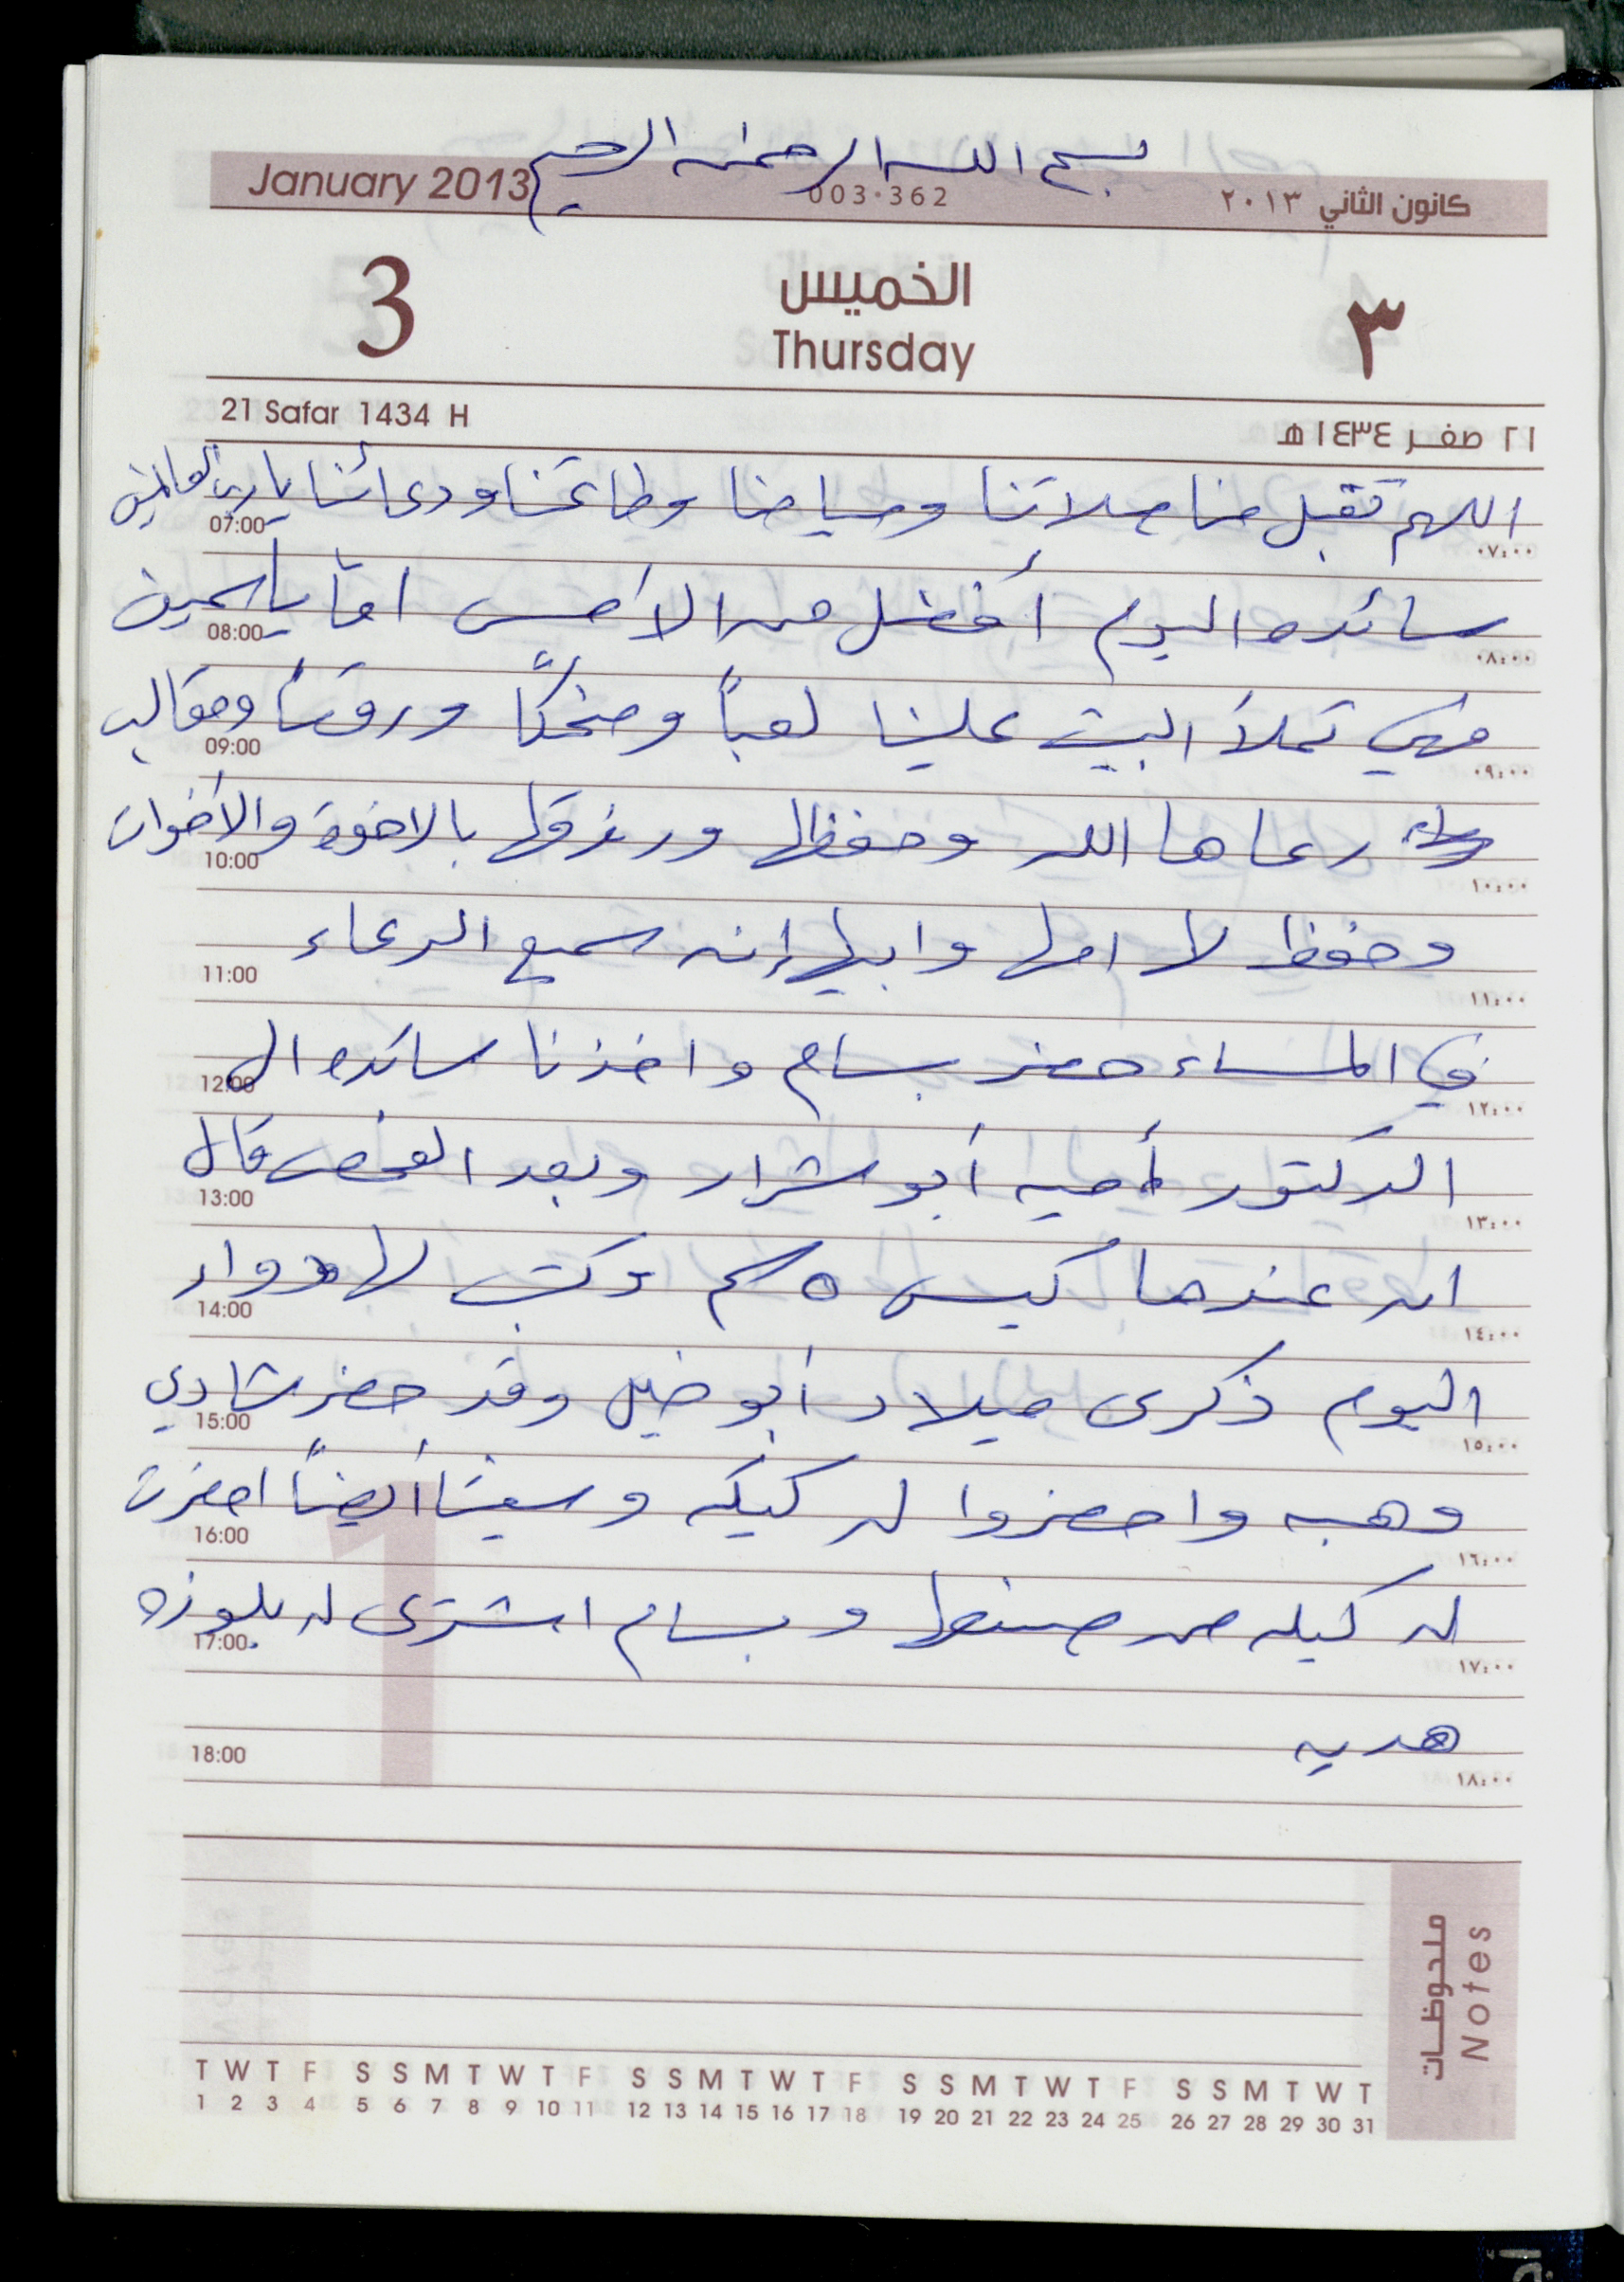 بسم الله الرحمن الرحيم
January 2013 003-362 كانون الثاني ٢٠١٣
3 الخميس ٣
Thursday
21 Safar 1434 H ٢١ صفر ١٤٣٤ هـ
اللهم تقبل منا صلاتنا وصيامنا وطاعتنا ودعائنا يا رب العالمين
07:00 ٠٧:٠٠
سائده اليوم أفضل من الأمس اما ياسمين
08:00 ٠٨:٠٠
فهي تملأ البيت علينا لعباً وضحكاً وروقنا ومقالب
09:00 ٠٩:٠٠
رعاها الله وحفظها ورزقها بالاخوة والأخوات
10:00 ١٠:٠٠
وحفظ لا امها وابيها إنه سميع الدعاء
11:00 ١١:٠٠
في المساء حضر بسام واخذنا سائده الى
12:00 ١٢:٠٠
الدكتور أميه أبو شرار وبعد الفحص قال
13:00 ١٣:٠٠
ان عندها كيس ٥ سم وكتب لها دواء
14:00 ١٤:٠٠
اليوم ذكرى ميلاد أبو خليل وقد حضر شادي
15:00 ١٥:٠٠
وهبه واحضروا له كيكه وسفينا أيضاً احضرت
16:00 ١٦:٠٠
له كيكه من صنعها وبسام اشترى له بلوزه
17:00 ١٧:٠٠
هديه
18:00 ١٨:٠٠
ملحوظات
Notes
T W T F S S M T W T F S S M T W T F S S M T W T F S S M T W T
1 2 3 4 5 6 7 8 9 10 11 12 13 14 15 16 17 18 19 20 21 22 23 24 25 26 27 28 29 30 31